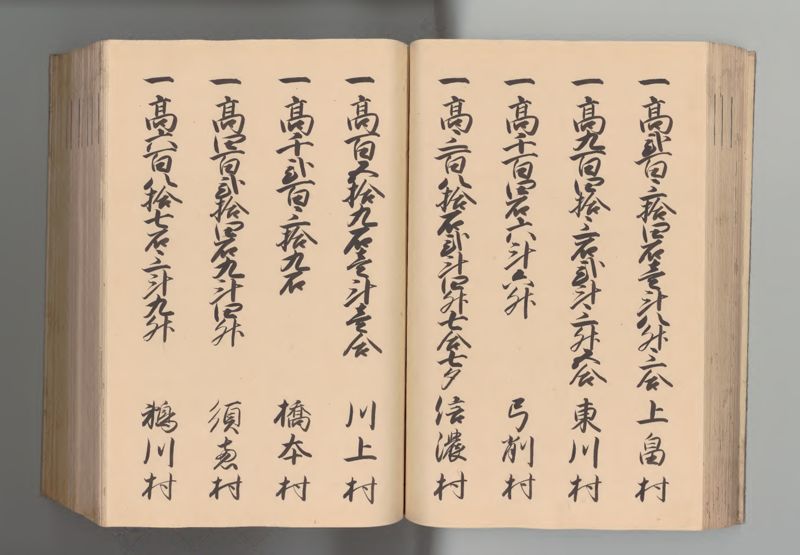 一高弐百三拾四石壱斗八升三合 上畠村
一高九百四拾三石弐斗三升五合 東川村
一高千百四石六斗六升 弓削村
一高三百八拾石弐斗四升七合七夕 信濃村
一高百五拾九石壱斗壱合 川上村
一高千弐百三拾九石 橋本村
一高四百弐拾四石九斗四升 須恵村
一高六百八拾七石三斗九升 鵜川村